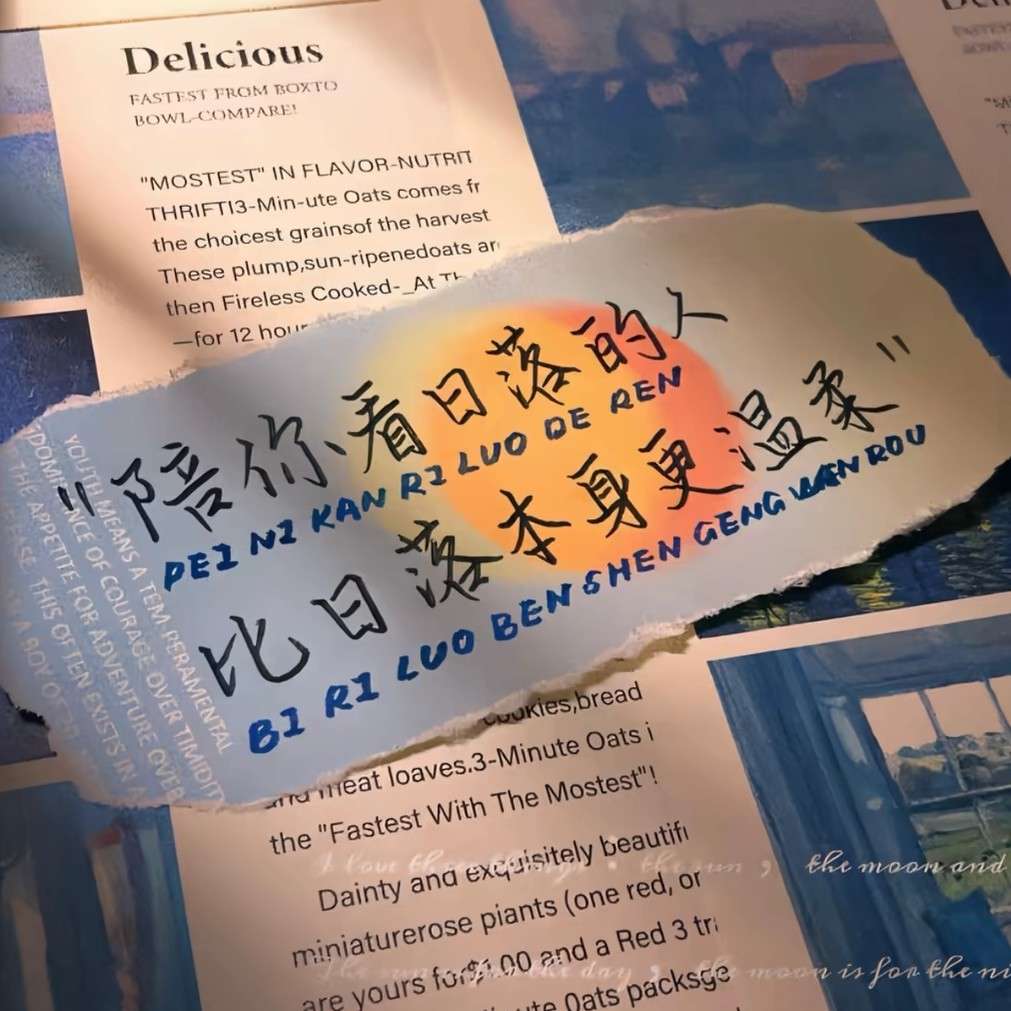 Delicious
FASTEST FROM BOXTO
BOWL-COMPARE!
"MOSTEST" IN FLAVOR-NUTRIT
THRIFTI3-Min-ute Oats comes fr
the choicest grainsof the harvest
These plump,sun-ripenedoats ar
then Fireless Cooked-_At Th
—for 12 hour
"陪你看日落的人
PEI NI KAN RI LUO DE REN
比日落本身更温柔"
BI RI LUO BEN SHEN GENG WEN ROU
YOUTH MEANS A TEM PERAMENTAL
NCE OF COURAGE OVER TIMIDIT
THE APPETITE FOR ADVENTURE OVER
THIS OFTEN EXISTS IN A
A BOY OF
cookies,bread
and meat loaves.3-Minute Oats i
the "Fastest With The Mostest"!
Dainty and exquisitely beautifu
miniaturerose piants (one red, or
are yours for$1.00 and a Red 3 tr
ute Oats packsge
I love three things : the sun , the moon and
The sun is for the day , the moon is for the ni